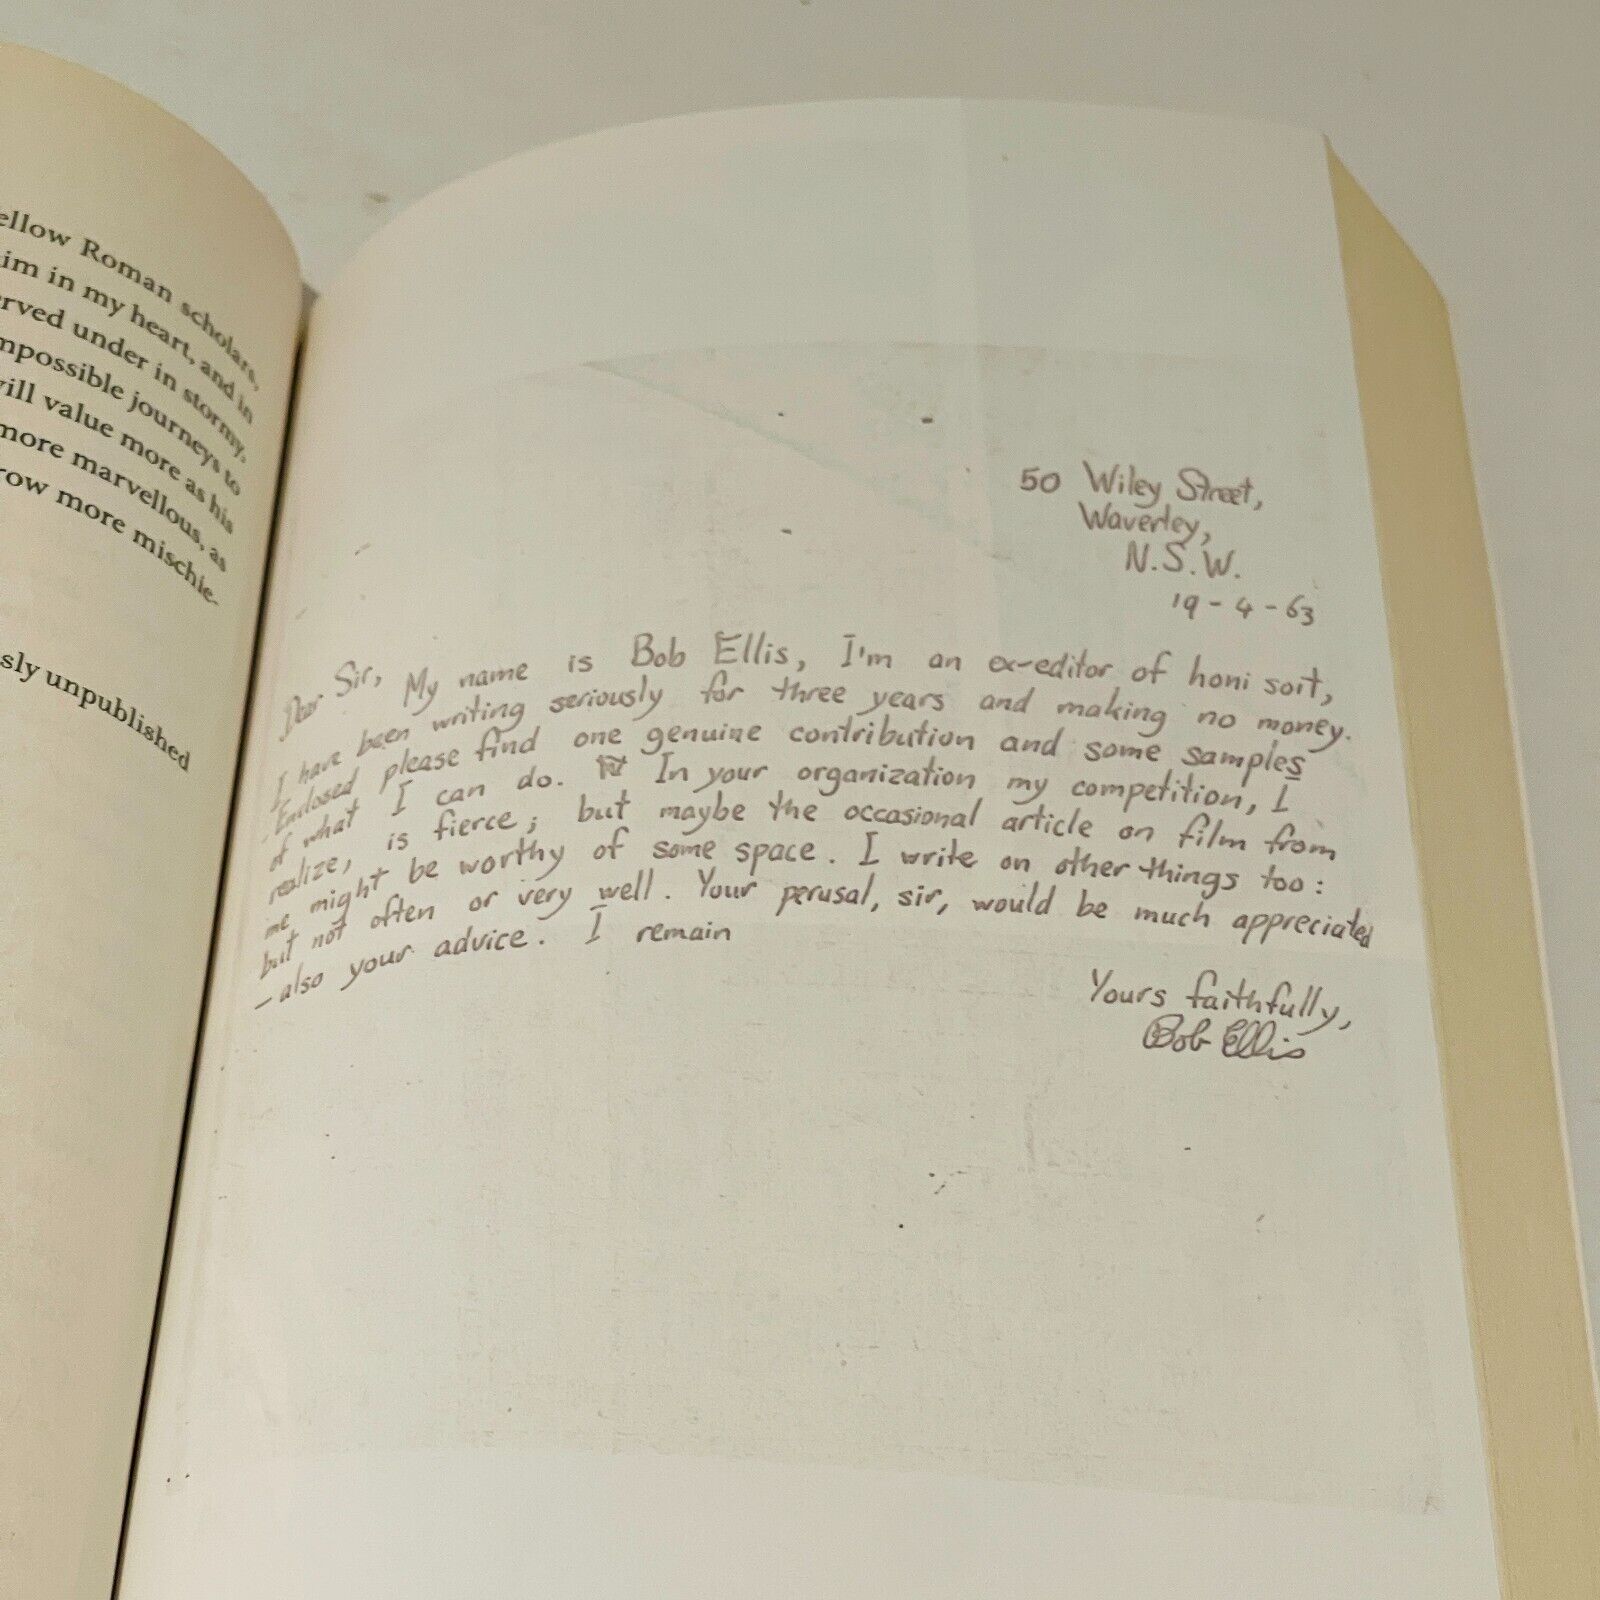 ellow Roman scholars,
im in my heart, and in
erved under in stormy,
mpossible journeys to
will value more as his
more marvellous, as
row more mischie-
sly unpublished
50 Wiley Street,
Waverley,
N.S.W.
19-4-63
Dear Sir, My name is Bob Ellis, I'm an ex-editor of honi soit,
I have been writing seriously for three years and making no money.
Enclosed please find one genuine contribution and some samples
of what I can do. In your organization my competition, I
realize, is fierce; but maybe the occasional article on film from
me might be worthy of some space. I write on other things too:
but not often or very well. Your perusal, sir, would be much appreciated
– also your advice. I remain
Yours faithfully,
Bob Ellis